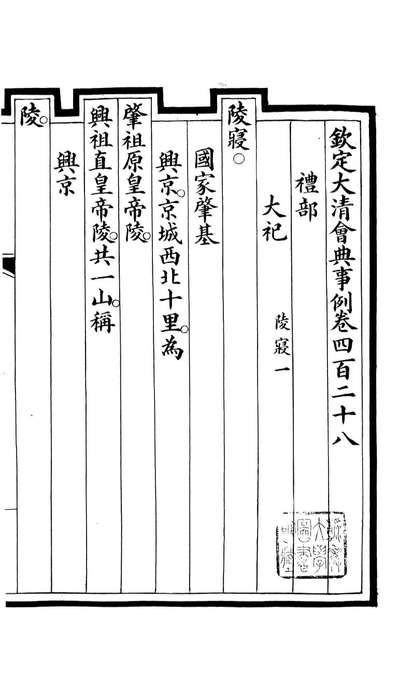 欽定大清會典事例卷四百二十八
禮部
大祀 陵寢一
陵寢○
國家肇基
興京京城西北十里為
肇祖原皇帝陵
興祖直皇帝陵共一山稱
興京
陵